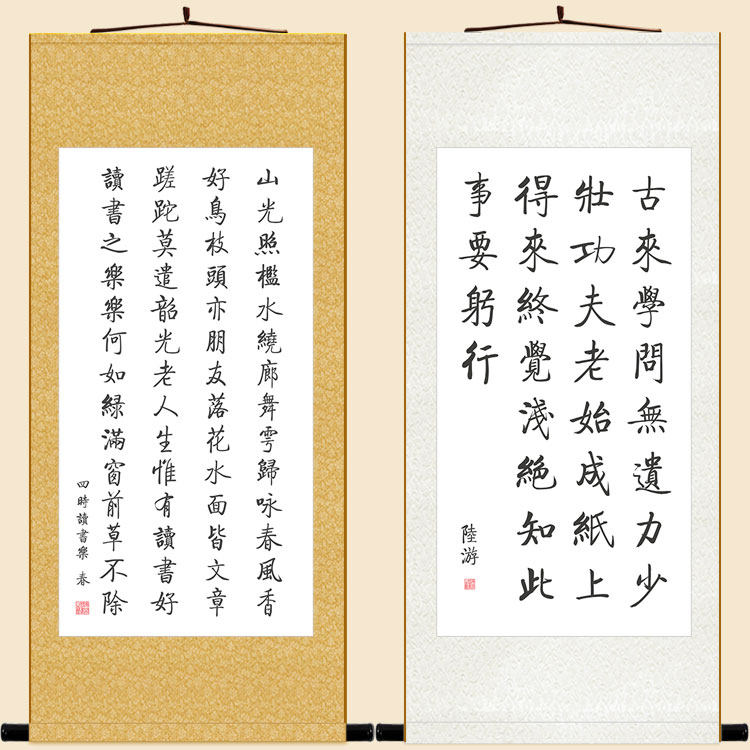 山光照檻水繞廊舞雩歸咏春風香
好鳥枝頭亦朋友落花水面皆文章
蹉跎莫遣韶光老人生惟有讀書好
讀書之樂樂何如綠滿窗前草不除
四時讀書樂 春
古來學問無遺力少
壯功夫老始成紙上
得來終覺淺絕知此
事要躬行
陸游